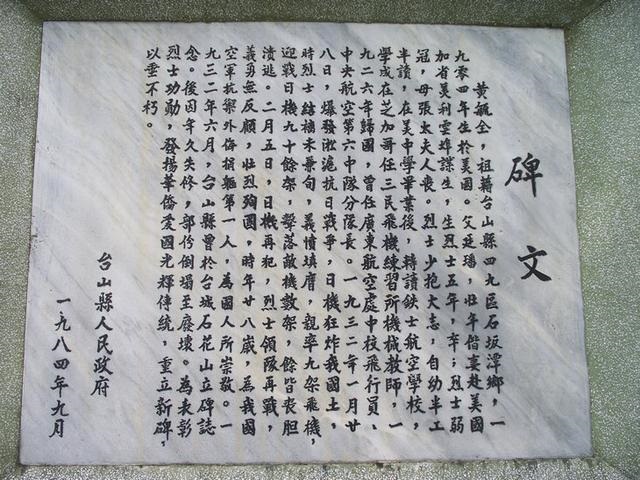 碑文
黄毓全，祖籍台山縣四九區石坂潭鄉，一
九零四年生於美國。父廷瑞，壯年偕妻赴美國
加省美利雲埠謀生，生烈士五年，卒；烈士弱
冠，母張太夫人喪。烈士少抱大志，自幼半工
半讀，在美中學畢業後，轉讀鉄士航空學校，
學成在芝加哥任三民飛機練習所機械教師，一
九二六年歸國，曾任廣東航空處中校飛行員、
中央航空第六中隊分隊長。一九三二年一月廿
八日，爆發淞滬抗日戰爭，日機狂炸我國土，
時烈士結褵未兼旬，義憤填膺，親率九架飛機，
迎戰日機九十餘架，擊落敵機數架，餘皆喪胆
潰逃。二月五日，日機再犯，烈士領隊再戰，
義勇無反顧，壯烈殉國，時年廿八歲，為我國
空軍抗禦外侮捐軀第一人，為國人所崇敬。一
九三二年六月，台山縣曾於台城石花山立碑誌
念。後因年久失修，部份倒塌至廢壞。為表彰
烈士功勳，發揚華僑爱國光輝傳統，重立新碑，
以垂不朽。
台山縣人民政府
一九八四年九月